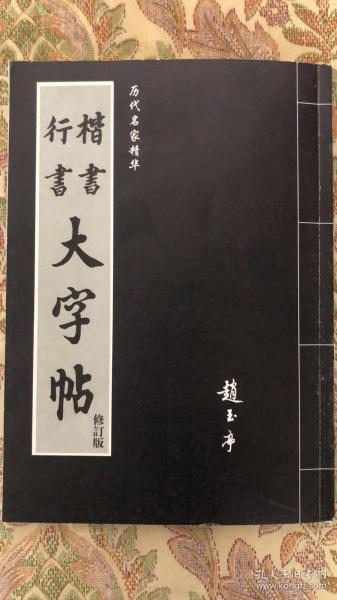 历代名家精华
楷書
行書
大字帖
修訂版
趙玉亭
孔夫子旧书网
www.kongfz.com